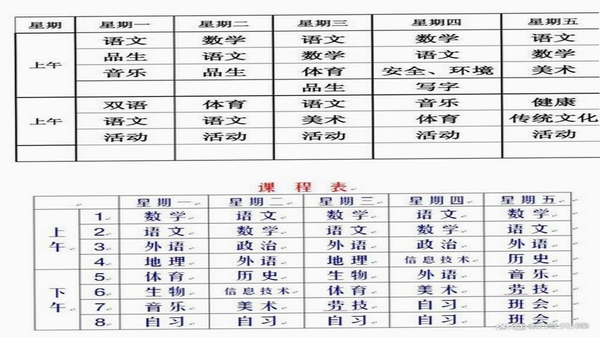 星期 星期一 星期二 星期三 星期四 星期五
语文 数学 语文 数学 语文
上午 品生 语文 数学 语文 数学
音乐 品生 体育 安全、环境 美术
品生 写字
双语 体育 语文 音乐 健康
上午 语文 语文 美术 体育 传统文化
活动 活动 活动 活动 活动
课 程 表
星期一 星期二 星期三 星期四 星期五
上午 1 数学 语文 数学 语文 数学
2 语文 数学 语文 数学 语文
3 外语 政治 外语 政治 外语
4 地理 外语 地理 信息技术 历史
下午 5 体育 历史 生物 外语 音乐
6 生物 信息技术 体育 美术 劳技
7 音乐 美术 劳技 自习 班会
8 自习 自习 自习 自习 班会